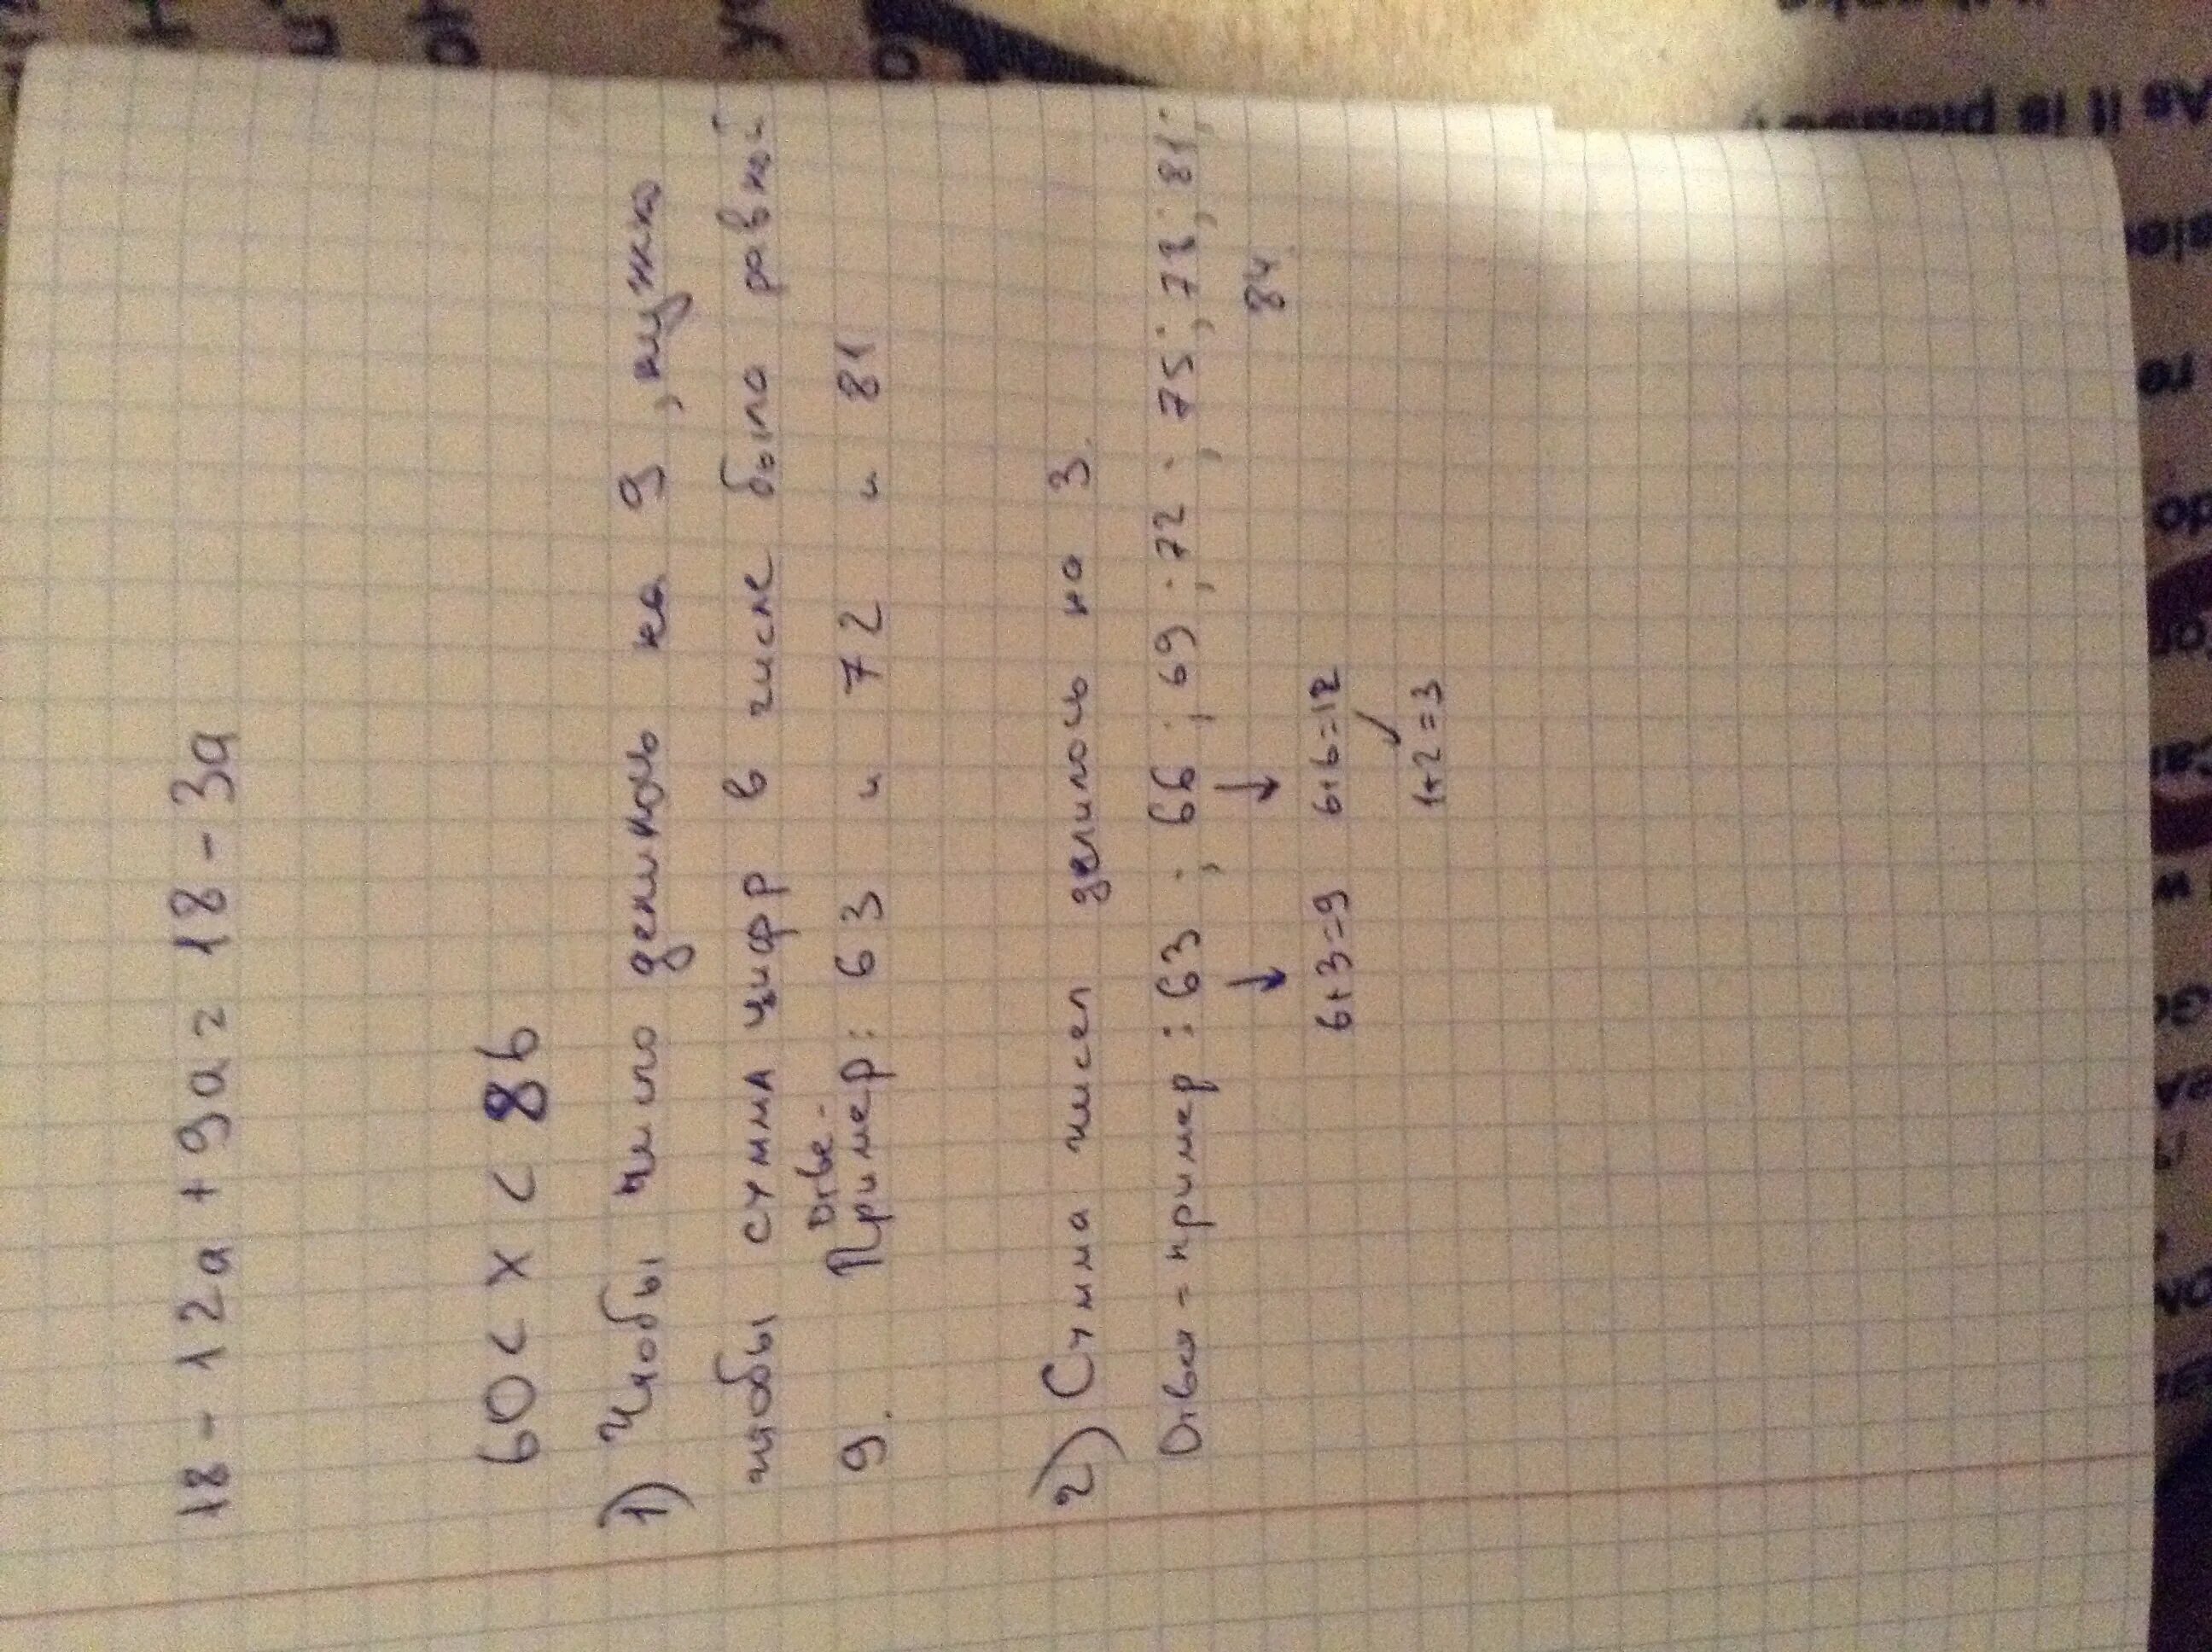 18 - 12a + 9a = 18 - 3a
60 < x < 86
1) Чтобы число делилось на 9, нужно
чтобы сумма цифр в числе была равной
9. Пример: 63 и 72 и 81
Отве-
2) Сумма чисел делилось на 3.
Ответ - пример: 63 ; 66 ; 69 ; 72 ; 75 ; 78 ; 81 ;
84
↓ ↓
6+3=9 6+6=12
1+2=3
As it is
re
do